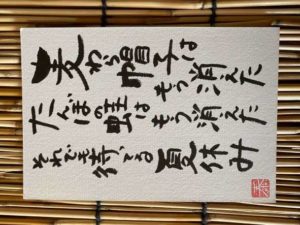 麦わら帽子は
もう消えた
たんぼの蛙は
もう消えた
それでも待ってる夏休み